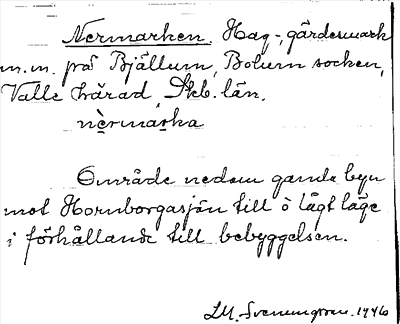 Nermarken. Hag-, gärdesmark
m.m. på Bjällum, Bolum socken,
Valle härad, Skb. län.
nèrmarka
Område nedom gamla byn
mot Hornborgasjön till ö lågt läge
i förhållande till bebyggelsen.
1946